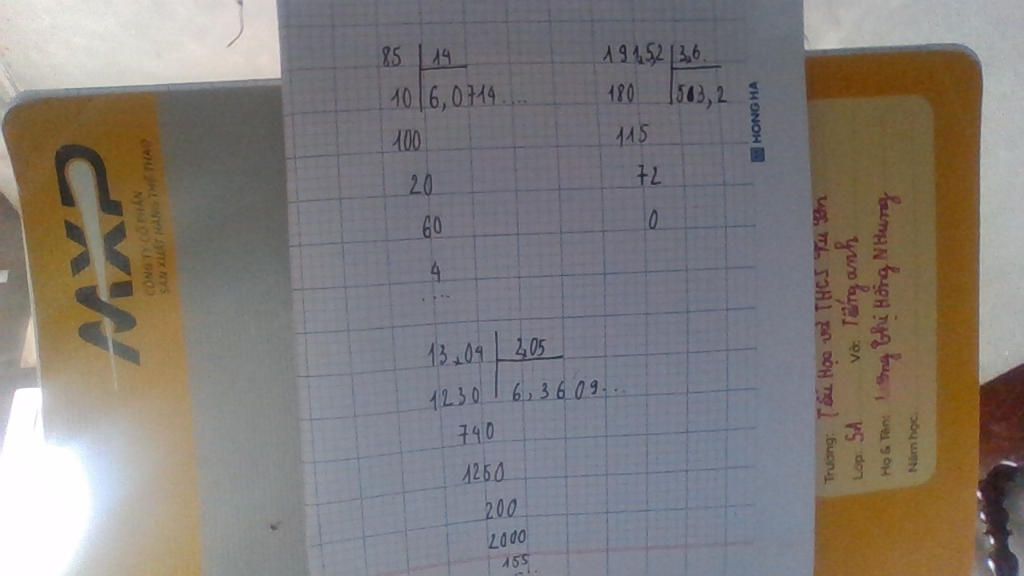 85 14
10 6,0714....
100
20
60
4
....
191,5,2 3,6.
180 513,2
115
72
0
13,04 2,05
1230 6,3609...
740
1250
200
2000
155
HONG HA
MXP
CÔNG TY CỔ PHẦN
SẢN XUẤT HÀNG THỂ THAO
Trường: Tiểu Học và THCS
Lớp: 5A Vở: Tiếng anh
Họ & Tên: Thị Hồng Nhung
Năm học: